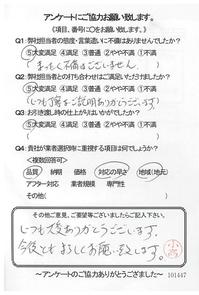 アンケートにご協力お願い致します。
《項目、番号に○をお願い致します。》
Q1: 弊社担当者の態度・言葉遣いに不備はありませんでしたか?
⑤大変満足 ④満足 ③普通 ②やや不満 ①不満
(まったく不満はございません。)
Q2: 弊社担当者との打ち合わせはご満足いただけましたか?
⑤大変満足 ④満足 ③普通 ②やや不満 ①不満
(いつも丁寧な説明ありがとうございます)
Q3: お引き渡し時の仕上がりはいかがでしたか?
⑤大変満足 ④満足 ③普通 ②やや不満 ①不満
( )
Q4: 貴社が業者選択時に重視する項目は何でしょうか?
<複数回答可>
品質 納期 価格 対応の早さ 地域(地元)
アフター対応 業者規模 専門性
その他( )
その他ご意見、ご要望等ございましたらご記入下さい。
いつも大変ありがとうございます。
今後ともよろしくお願い致します。
〜アンケートのご協力ありがとうございました〜
101447